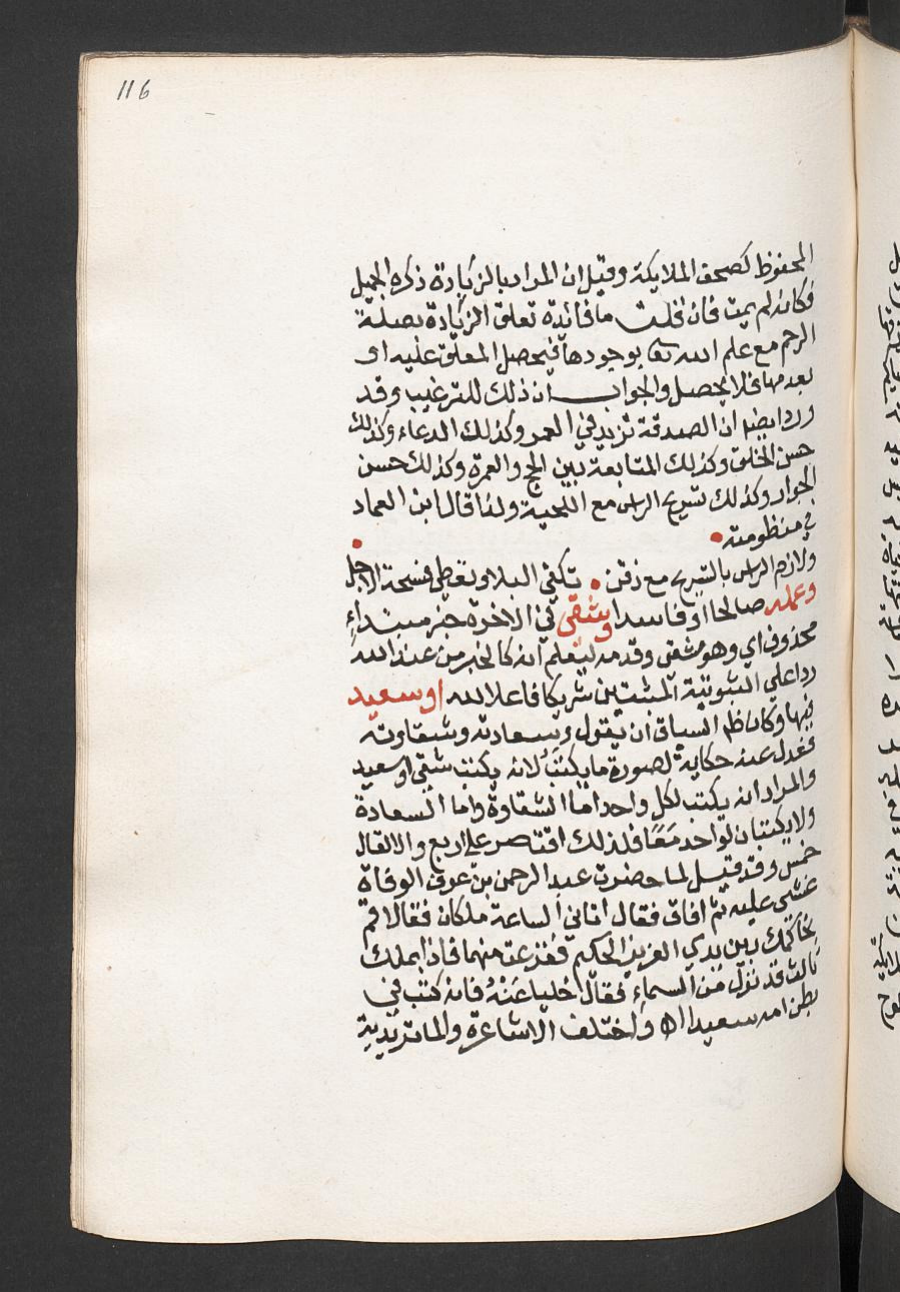 116
المحفوظ كصحف الملايكة وقيل ان المراد بالزيادة ذكره الجميل
فكانه لم يمت فان قلت ما فائدة تعلق الزيادة بصلة
الرحم مع علم الله تعا بوجودها فيحصل المعلق عليه او
بعدمها فلا يحصل والجواب ان ذلك للترغيب وقد
ورد ايضا ان الصدقة تزيد في العمر وكذلك الدعاء وكذلك
حسن الخلق وكذلك المتابعة بين الحج والعمرة وكذلك حسن
الجوار وكذلك تسريح الراس مع اللحية ولذا قال ابن العماد
في منظومته
ولازم الراس بالتسريح مع ذقن تكفى البلا وتعطى فسحة الاجل
وعمله صالحا او فاسدا وشقى في الاخرة خبر مبتداء
محذوف اي وهو شقى وقدمه ليعلم انه كالخبر من عند الله
ردا على الثنوية المثبتين شريكا فاعلا لله او سعيد
فيها وكان ظم السياق ان يقول وسعادته وشقاوته
فعدل عنه حكاية لصورة ما يكتب لانه يكتب شقى او سعيد
والمراد انه يكتب لكل واحد اما الشقاوة واما السعادة
ولا يكتبان لواحد معا فلذلك اقتصر على اربع والا لقال
خمس وقد قيل لما حضرت عبد الرحمن بن عوف الوفاة
غشي عليه ثم افاق فقال اتاني الساعة ملكان فقالا قم
نحاكمك بين يدي العزيز الحكيم ففزعت منهما فاذا بملك
ثالث قد نزل من السماء فقال خليا عنه فانه كتب في
بطن امه سعيدا اه واختلف الاشاعرة والماتريدية